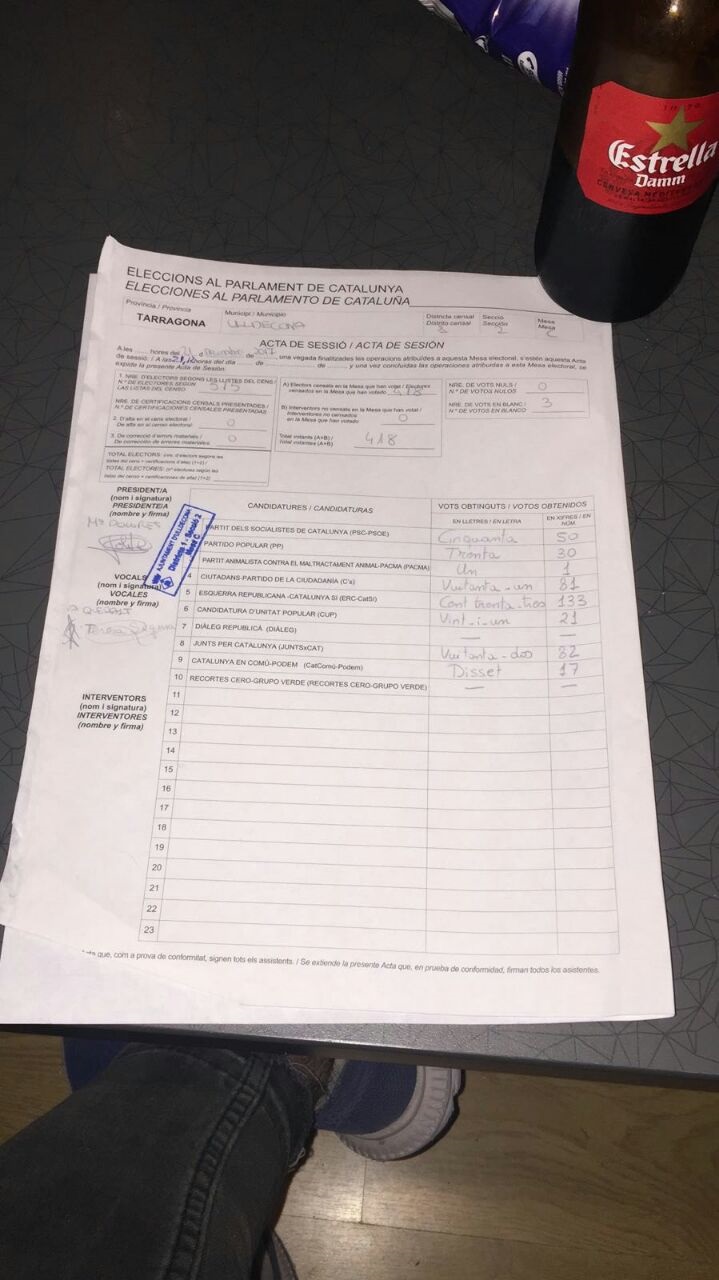 Estrella
Damm
ELECCIONS AL PARLAMENT DE CATALUNYA
ELECCIONES AL PARLAMENTO DE CATALUÑA
Província / Provincia
TARRAGONA
Municipi / Municipio
ULLDECONA
Districte censal
Distrito censal
Secció
Sección
2
Mesa
Mesa
C
ACTA DE SESSIÓ / ACTA DE SESIÓN
A les hores del 21 de Desembre de 2017, una vegada finalitzades les operacions atribuïdes a aquesta Mesa electoral, s'estén aquesta Acta
de sessió. / A las horas del día de de y una vez concluidas las operaciones atribuidas a esta Mesa electoral, se
expide la presente Acta de Sesión.
1. NRE. D'ELECTORS SEGONS LES LLISTES DEL CENS /
N.º DE ELECTORES SEGÚN
LAS LISTAS DEL CENSO
575
NRE. DE CERTIFICACIONS CENSALS PRESENTADES /
N.º DE CERTIFICACIONES CENSALES PRESENTADAS
2. D'alta en el cens electoral /
De alta en el censo electoral
0
3. De correcció d'errors materials /
De corrección de errores materiales
0
TOTAL ELECTORS:
TOTAL ELECTORES:
A) Electors censats en la Mesa que han votat / Electores
censados en la Mesa que han votado
418
B) Interventors no censats en la Mesa que han votat /
Interventores no censados
en la Mesa que han votado
0
Total votants (A+B) /
Total votantes (A+B)
418
NRE. DE VOTS NULS /
N.º DE VOTOS NULOS
0
NRE. DE VOTS EN BLANC /
N.º DE VOTOS EN BLANCO
3
PRESIDENT/A
(nom i signatura)
PRESIDENTE/A
(nombre y firma)
Mª DOLORES
VOCALS
(nom i signatura)
VOCALES
(nombre y firma)
Teresa
INTERVENTORS
(nom i signatura)
INTERVENTORES
(nombre y firma)
AJUNTAMENT D'ULLDECONA
Districte 1 - Secció 2
Mesa C
CANDIDATURES / CANDIDATURAS
VOTS OBTINGUTS / VOTOS OBTENIDOS
EN LLETRES / EN LETRA
EN XIFRES / EN NÚM
PARTIT DELS SOCIALISTES DE CATALUNYA (PSC-PSOE) Cinquanta 50
PARTIDO POPULAR (PP) Trenta 30
PARTIT ANIMALISTA CONTRA EL MALTRACTAMENT ANIMAL-PACMA (PACMA) Un 1
4 CIUTADANS-PARTIDO DE LA CIUDADANÍA (C's) Vuitanta-un 81
5 ESQUERRA REPUBLICANA -CATALUNYA SÍ (ERC-CatSí) Cent trenta-tres 133
6 CANDIDATURA D'UNITAT POPULAR (CUP) Vint-i-un 21
7 DIÀLEG REPUBLICÀ (DIÀLEG) — —
8 JUNTS PER CATALUNYA (JUNTSxCAT) Vuitanta-dos 82
9 CATALUNYA EN COMÚ-PODEM (CatComú-Podem) Disset 17
10 RECORTES CERO-GRUPO VERDE (RECORTES CERO-GRUPO VERDE) — —
11
12
13
14
15
16
17
18
19
20
21
22
23
que, com a prova de conformitat, signen tots els assistents. / Se extiende la presente Acta que, en prueba de conformidad, firman todos los asistentes.